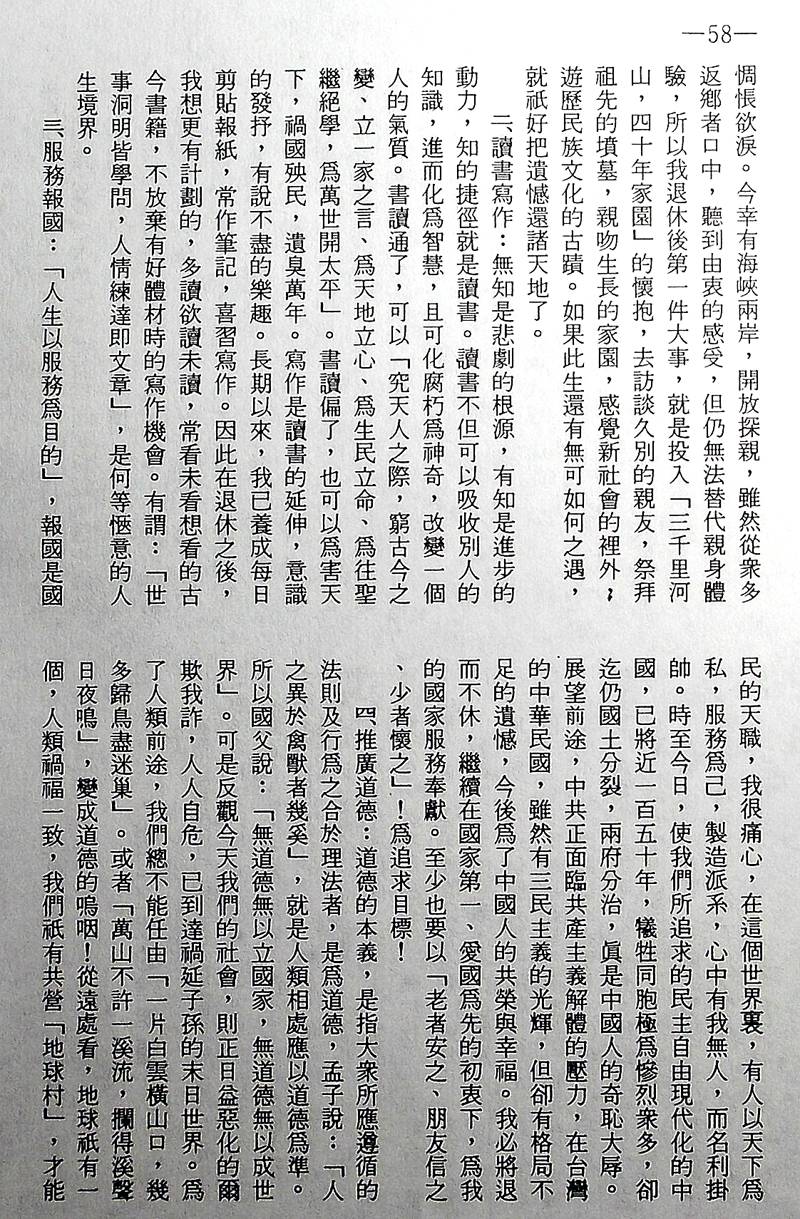 —58—
惆悵欲淚。今幸有海峽兩岸，開放探親，雖然從衆多
返鄉者口中，聽到由衷的感受，但仍無法替代親身體
驗，所以我退休後第一件大事，就是投入「三千里河
山，四十年家園」的懷抱，去訪談久別的親友，祭拜
祖先的墳墓，親吻生長的家園，感覺新社會的裡外；
遊歷民族文化的古蹟。如果此生還有無可如何之遇，
就祇好把遺憾還諸天地了。
二、讀書寫作：無知是悲劇的根源，有知是進步的
動力，知的捷徑就是讀書。讀書不但可以吸收別人的
知識，進而化爲智慧，且可化腐朽爲神奇，改變一個
人的氣質。書讀通了，可以「究天人之際，窮古今之
變、立一家之言、爲天地立心、爲生民立命、爲往聖
繼絕學，爲萬世開太平」。書讀偏了，也可以爲害天
下，禍國殃民，遺臭萬年。寫作是讀書的延伸，意識
的發抒，有說不盡的樂趣。長期以來，我已養成每日
剪貼報紙，常作筆記，喜習寫作。因此在退休之後，
我想更有計劃的，多讀欲讀未讀，常看未看想看的古
今書籍，不放棄有好體材時的寫作機會。有謂：「世
事洞明皆學問，人情練達即文章」，是何等愜意的人
生境界。
三、服務報國：「人生以服務爲目的」，報國是國
民的天職，我很痛心，在這個世界裏，有人以天下爲
私，服務爲己，製造派系，心中有我無人，而名利掛
帥。時至今日，使我們所追求的民主自由現代化的中
國，已將近一百五十年，犧牲同胞極爲慘烈衆多，卻
迄仍國土分裂，兩府分治，眞是中國人的奇恥大辱。
展望前途，中共正面臨共產主義解體的壓力，在台灣
的中華民國，雖然有三民主義的光輝，但卻有格局不
足的遺憾，今後爲了中國人的共榮與幸福。我必將退
而不休，繼續在國家第一、愛國爲先的初衷下，爲我
的國家服務奉獻。至少也要以「老者安之、朋友信之
、少者懷之」！爲追求目標！
四、推廣道德：道德的本義，是指大衆所應遵循的
法則及行爲之合於理法者，是爲道德，孟子說：「人
之異於禽獸者幾奚」，就是人類相處應以道德爲準。
所以國父說：「無道德無以立國家，無道德無以成世
界」。可是反觀今天我們的社會，則正日益惡化的爾
欺我詐，人人自危，已到達禍延子孫的末日世界。爲
了人類前途，我們總不能任由「一片白雲橫山口，幾
多歸鳥盡迷巢」。或者「萬山不許一溪流，攔得溪聲
日夜鳴」，變成道德的嗚咽！從遠處看，地球祇有一
個，人類禍福一致，我們祇有共營「地球村」，才能